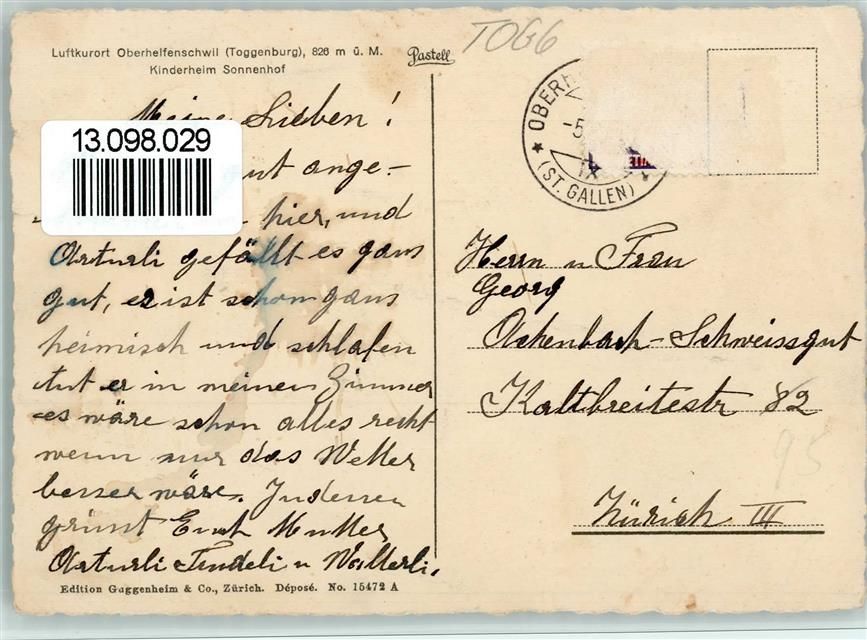 Luftkurort Oberhelfenschwil (Toggenburg), 826 m ü. M.
Kinderheim Sonnenhof
Pastell
TOGG
Meine Lieben!
13.098.029
ange-
hier, und
Arturli gefällt es gans
gut, er ist schon gans
heimisch und schlafen
tut er in meinem Zimmer
es wäre schon alles recht
wenn nur das Wetter
besser wäre. Indessen
grüsst Euch Mutter
Arturli u Walterli.
Edition Guggenheim & Co., Zürich. Déposé. No. 15472 A
OBERH
-5.
IX
(ST. GALLEN)
Herrn u Frau
Georg
Achenbach-Schweissgut
Kaltbreitestr 82
95
Zürich III